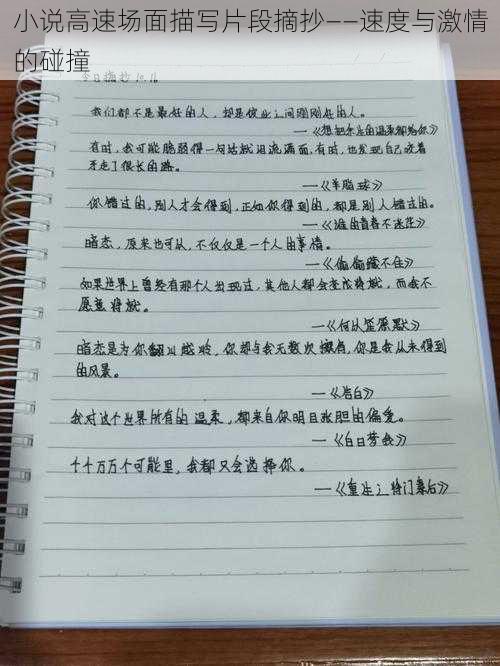 小说高速场面描写片段摘抄——速度与激情
的碰撞
今日摘抄 10.16
我们都不是最好的人，却是彼此之间刚刚好的人。
—《想把余生的温柔都给你》
有时，我可能脆弱得一句话就泪流满面，有时，也发现自己咬着
牙走了很长的路。
—《羊脂球》
你错过的，别人才会得到，正如你得到的，都是别人错过的。
—《谁的青春不迷茫》
暗恋，原来也可以，不仅仅是一个人的事情。
—《偷偷藏不住》
如果世界上曾经有那个人出现过，其他人都会变成将就，而我不
愿意将就。
—《何以笙箫默》
暗恋是为你翻山越岭，你却与我无数次擦肩，你是我从未得到
的风景。
—《告白》
我对这个世界所有的温柔，都来自你明目张胆的偏爱。
—《白日梦我》
千千万万个可能里，我都只会选择你。
—《重生之将门毒后》